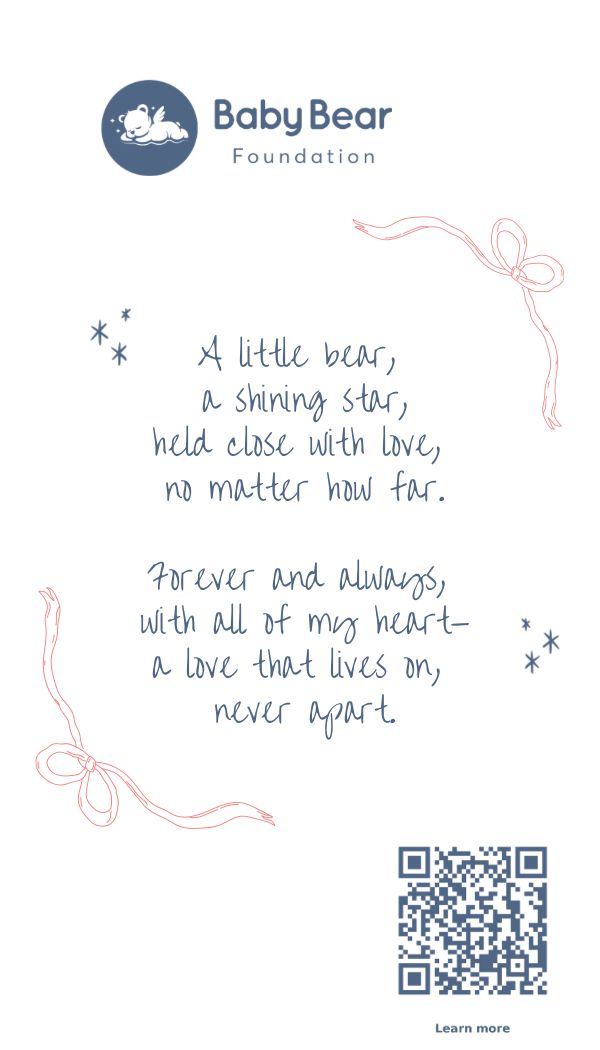 Baby Bear
Foundation
A little bear,
a shining star,
held close with love,
no matter how far.
Forever and always,
with all of my heart–
a love that lives on,
never apart.
Learn more